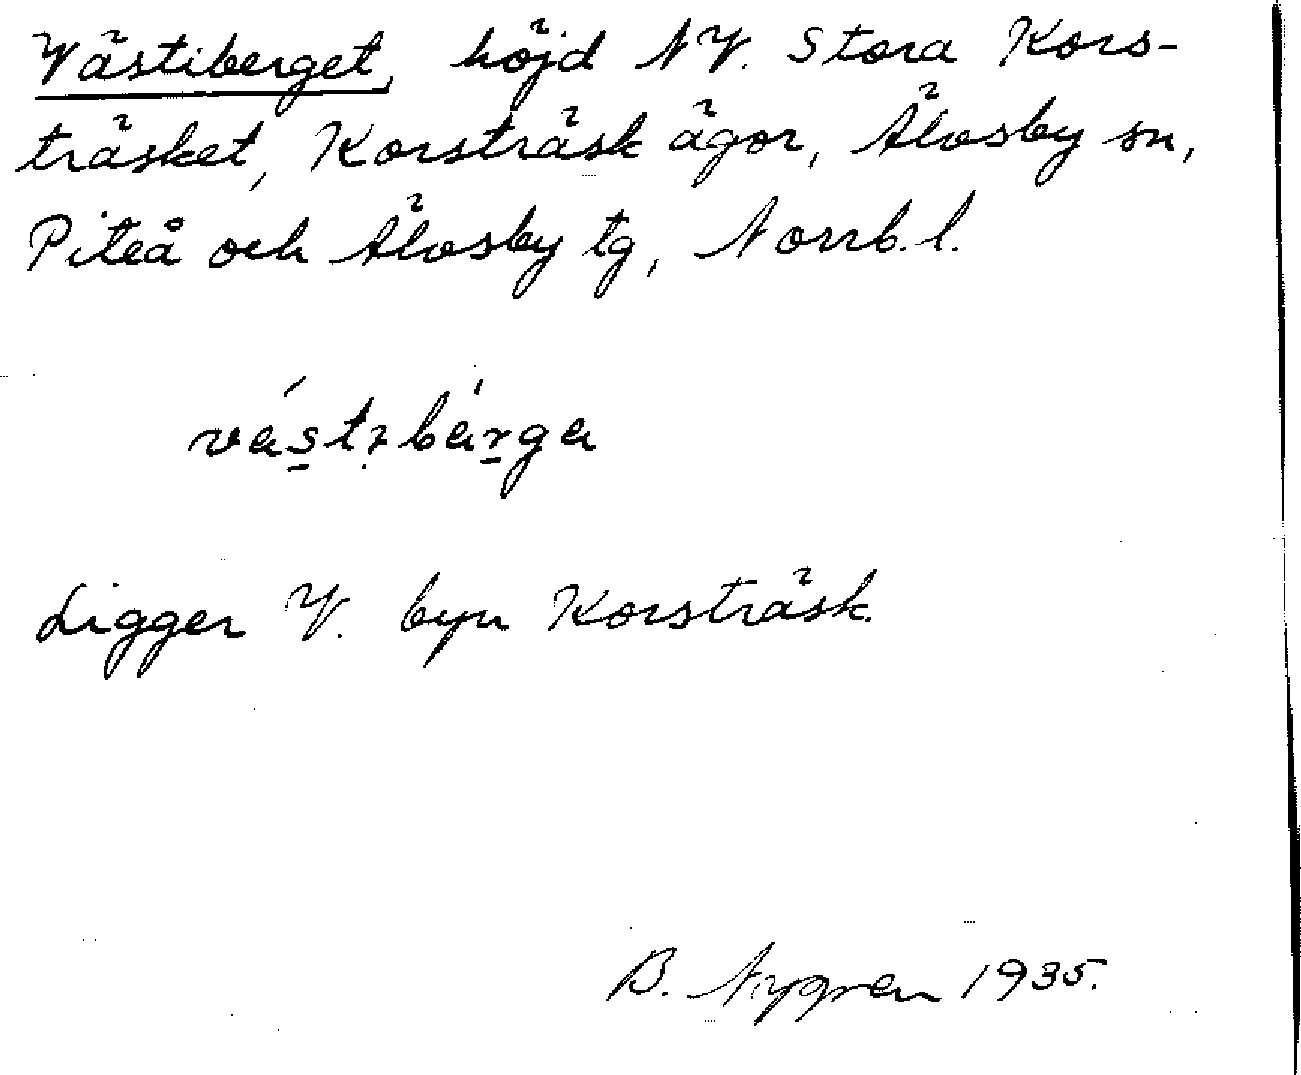 Västiberget, höjd NV. Stora Kors-
träsket, Korsträsk ägor, Älvsby sn,
Piteå och Älvsby tg, Norrb. l.
Ligger V. byn Korsträsk.
B. Nygren 1935.